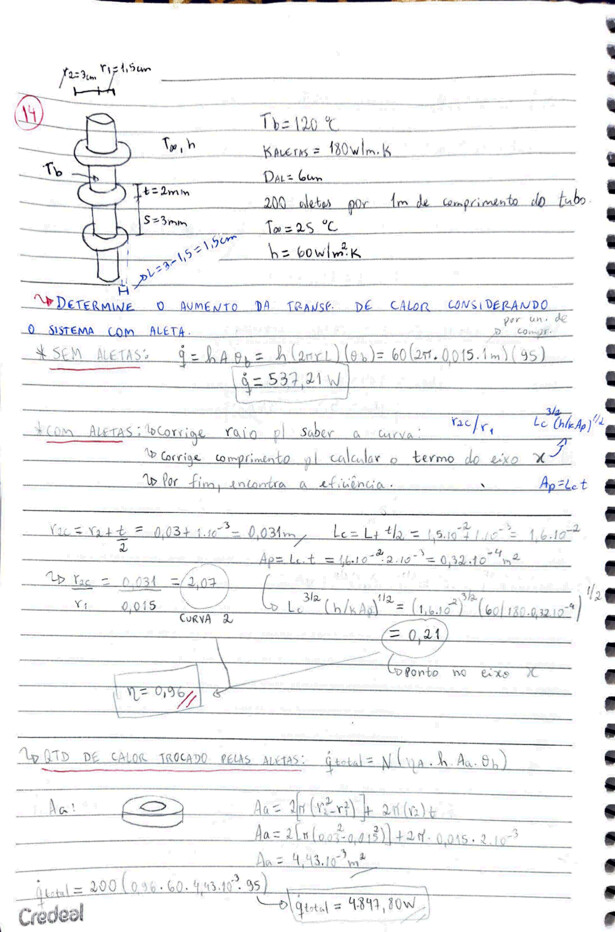 r2=3cm r1=1,5cm
14
Tb=120 °C
T∞, h
KALETAS = 180W/m.K
Tb
DAL= 6cm
t=2mm
200 aletas por 1m de comprimento do tubo.
S=3mm
T∞=25 °C
h=60W/m².K
L=3-1,5=1,5cm
DETERMINE O AUMENTO DA TRANSF. DE CALOR CONSIDERANDO
O SISTEMA COM ALETA.
por un. de
compr.
* SEM ALETAS: q̇= hAθb = h(2πrL)(θb)= 60(2π.0,015.1m)(95)
q̇=537,21W
*COM ALETAS: Corrige raio p/ saber a curva: r2c/r1 Lc^3/2 (h/kAp)^1/2
Corrige comprimento p/ calcular o termo do eixo x
Por fim, encontra a eficiência. Ap=Lc.t
r2c=r2+t/2 = 0,03+1.10^-3=0,031m, Lc=L+t/2=1,5.10^-2+1.10^-3=1,6.10^-2
Ap=Lc.t=1,6.10^-2.2.10^-3=0,32.10^-4m²
r2c/r1=0,031/0,015=2,07 Lc^3/2(h/kAp)^1/2=(1,6.10^-2)^3/2(60/180.0,32.10^-4)^1/2
CURVA 2
=0,21
ponto no eixo x
η=0,96
QTD DE CALOR TROCADO PELAS ALETAS: q̇total=N(ηA.h.Aa.θb)
Aa: Aa=2[π(r2²-r1²)]+2π(r2)t
Aa=2[π(0,03²-0,015²)]+2π.0,015.2.10^-3
Aa=4,43.10^-3m²
q̇total=200(0,96.60.4,43.10^-3.95)
q̇total=4847,80W
Credeal